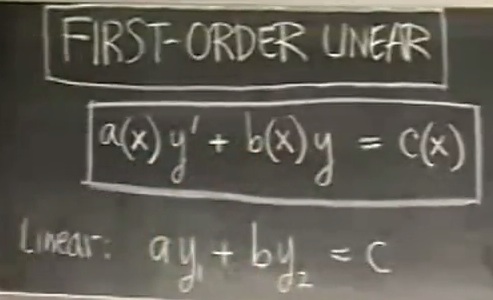 FIRST-ORDER LINEAR
a(x)y' + b(x)y = c(x)
Linear: ay₁ + by₂ = c